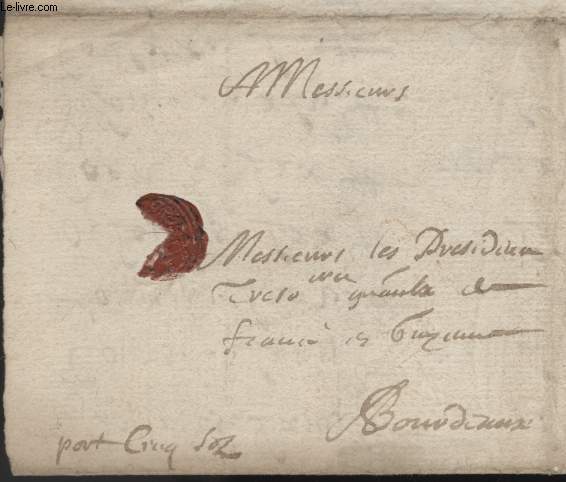 Le-livre.com
A Messieurs
Messieurs les Presidens
Treso gnaulx de
france en Guyenne
Bourdeaux
port Cinq solz